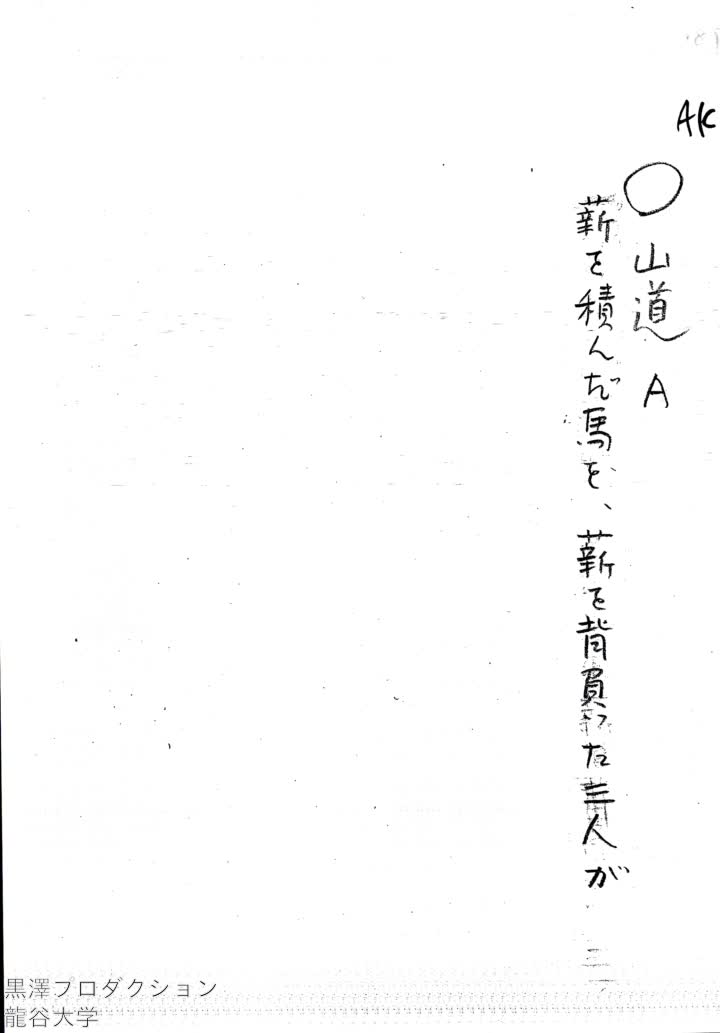 AK
○ 山道 A
薪を積んだ馬を、薪を背負った三人が
黒澤プロダクション
龍谷大学